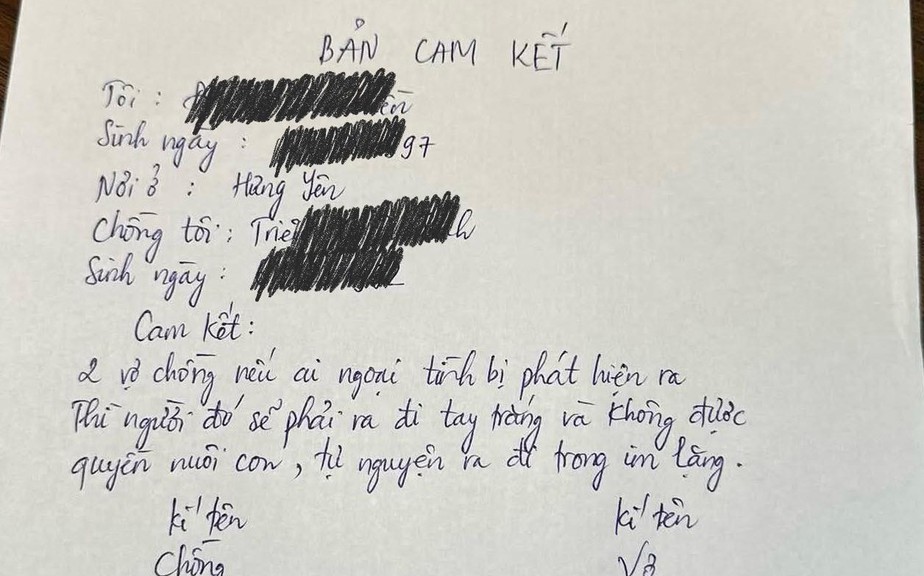 BẢN CAM KẾT
Tôi :
Sinh ngày : 97
Nơi ở : Hưng Yên
Chồng tôi :
Sinh ngày :
Cam kết :
2 vợ chồng nếu ai ngoại tình bị phát hiện ra
Thì người đó sẽ phải ra đi tay trắng và không được
quyền nuôi con, tự nguyện ra đi trong im lặng.
kí tên kí tên
Chồng Vợ